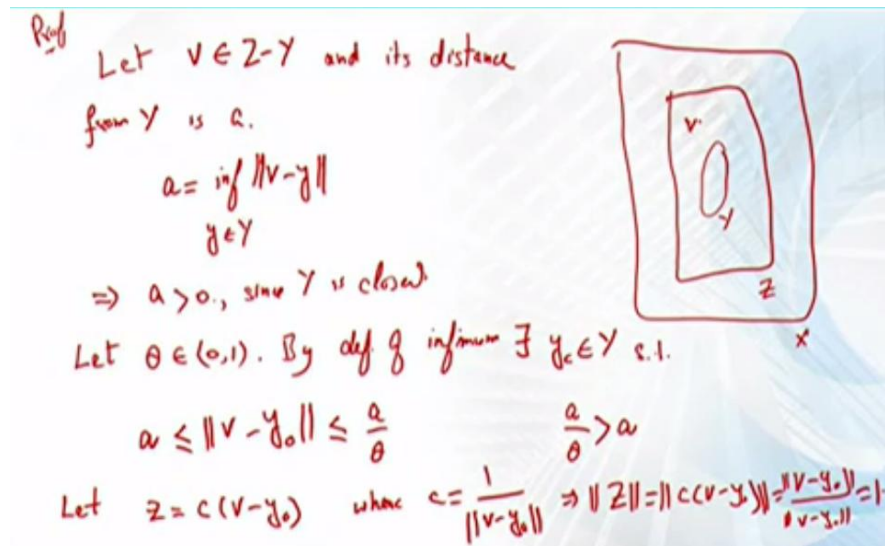 Proof
Let v ∈ Z-Y and its distance
from Y is a.
a = inf ||v-y||
y∈Y
⇒ a>0., since Y is closed.
Let θ ∈ (0,1). By def of infimum ∃ y₀∈Y s.t.
a ≤ ||v-y₀|| ≤ a/θ
a/θ > a
Let z = c(v-y₀) where c = 1/||v-y₀|| ⇒ ||Z|| = ||c(v-y₀)|| = ||v-y₀||/||v-y₀|| = 1.
v.
Y
Z
X